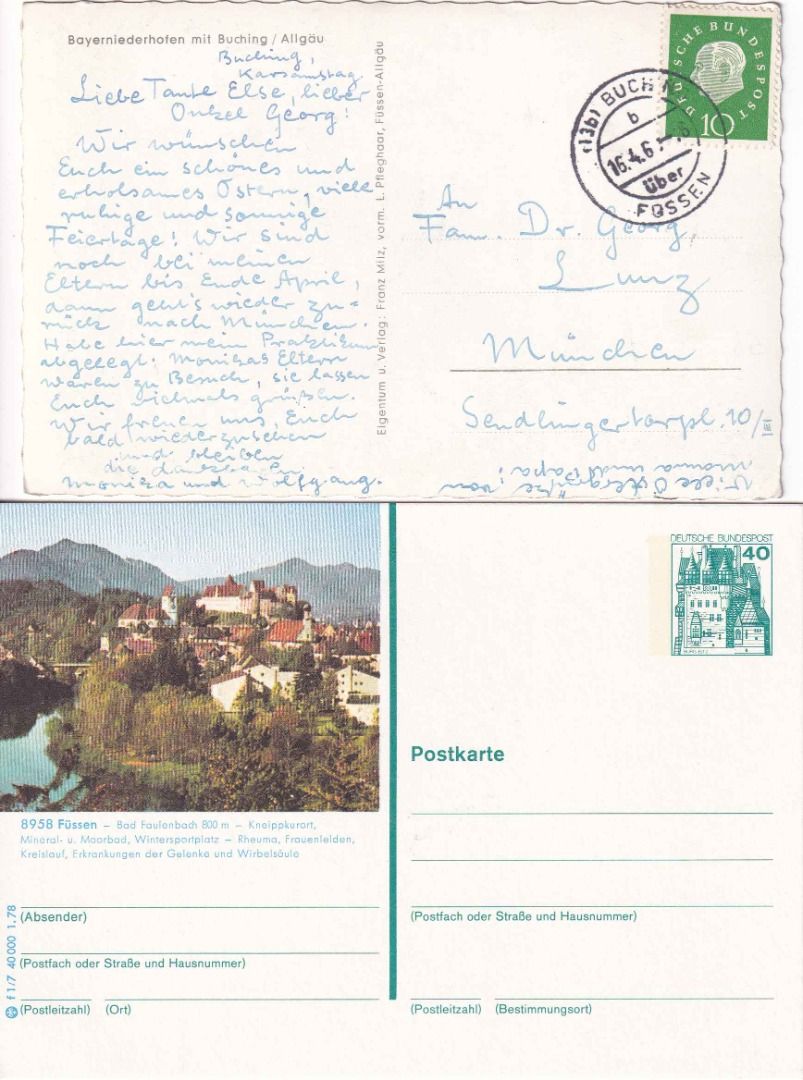 Bayerniederhofen mit Buching / Allgäu
Buching,
Karsamstag
Liebe Tante Else, lieber
Onkel Georg!
Wir wünschen
Euch ein schönes und
erholsames Ostern, viele
ruhige und sonnige
Feiertage! Wir sind
noch bei meinen
Eltern bis Ende April,
dann geht's wieder zu-
rück nach München.
Habe hier mein Praktikum
abgelegt. Monikas Eltern
waren zu Besuch, sie lassen
Euch vielmals grüßen.
Wir freuen uns, Euch
bald wiederzusehen
und bleiben
die dankbaren
Monika und Wolfgang.
Eigentum u. Verlag: Franz Milz, vorm. L. Pfleghaar, Füssen-Allgäu
DEUTSCHE BUNDESPOST
10
(13b) BUCHING
b
16.4.6
über
FÜSSEN
An
Fam. Dr. Georg
Lunz
München
Sendlingertorpl. 10/III
Viele Ostergrüße von
Mama und Papa!
DEUTSCHE BUNDESPOST
40
BURG ELTZ
Postkarte
8958 Füssen – Bad Faulenbach 800 m – Kneippkurort,
Mineral- u. Moorbad, Wintersportplatz – Rheuma, Frauenleiden,
Kreislauf, Erkrankungen der Gelenke und Wirbelsäule
(Absender)
(Postfach oder Straße und Hausnummer)
(Postleitzahl) (Ort)
f 1/7 40 000 1.78
(Postfach oder Straße und Hausnummer)
(Postleitzahl) (Bestimmungsort)